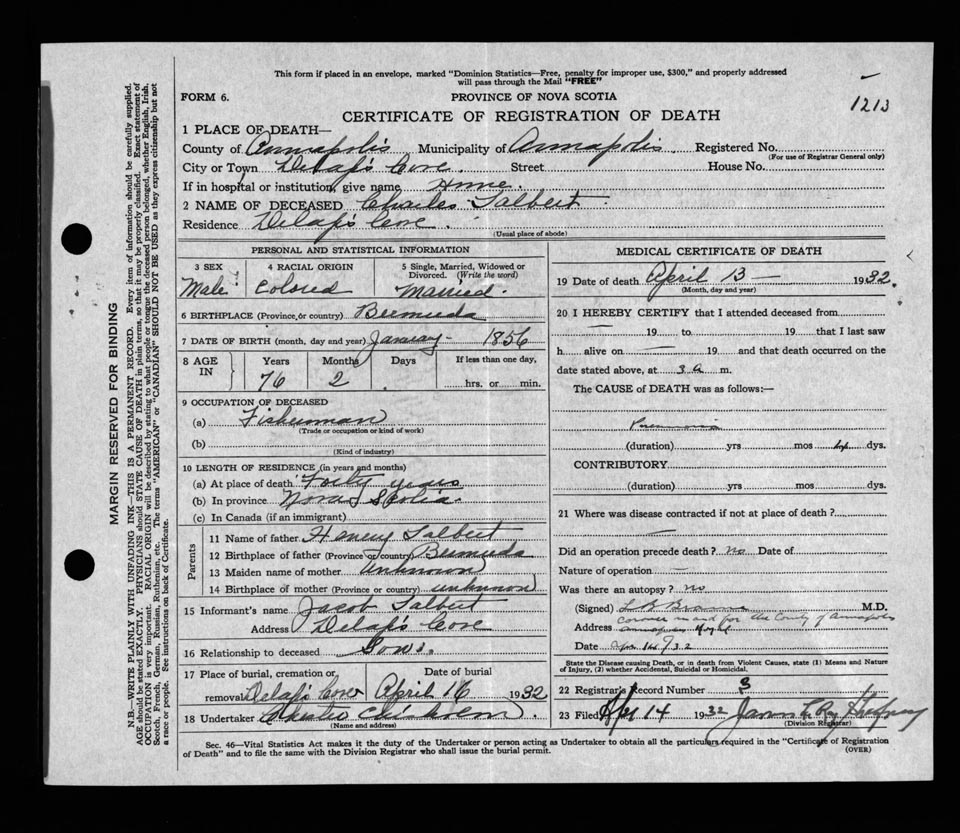 This form if placed in an envelope, marked "Dominion Statistics—Free, penalty for improper use, $300," and properly addressed
will pass through the Mail "FREE"
FORM 6.
PROVINCE OF NOVA SCOTIA
1213
CERTIFICATE OF REGISTRATION OF DEATH
1 PLACE OF DEATH—
County of Annapolis Municipality of Annapolis Registered No.
(For use of Registrar General only)
City or Town Delap's Cove. Street House No.
If in hospital or institution, give name Home.
2 NAME OF DECEASED Charles Talbert
Residence Delap's Cove.
(Usual place of abode)
PERSONAL AND STATISTICAL INFORMATION
3 SEX
Male
4 RACIAL ORIGIN
Colored
5 Single, Married, Widowed or
Divorced. (Write the word)
Married.
6 BIRTHPLACE (Province or country) Bermuda
7 DATE OF BIRTH (month, day and year) January - 1856
8 AGE IN
Years Months Days If less than one day,
76 2 hrs. or min.
9 OCCUPATION OF DECEASED
(a) Fisherman
(Trade or occupation or kind of work)
(b)
(Kind of industry)
10 LENGTH OF RESIDENCE (in years and months)
(a) At place of death Forty years
(b) In province Nova Scotia.
(c) In Canada (if an immigrant)
Parents
11 Name of father Henry Talbert
12 Birthplace of father (Province or country) Bermuda
13 Maiden name of mother Unknown
14 Birthplace of mother (Province or country) unknown
15 Informant's name Jacob Talbert
Address Delap's Cove
16 Relationship to deceased Son.
17 Place of burial, cremation or Date of burial
removal Delaps Cove April 16 1932
18 Undertaker Charles
(Name and address)
MEDICAL CERTIFICATE OF DEATH
19 Date of death April 13 — 1932.
(Month, day and year)
20 I HEREBY CERTIFY that I attended deceased from
— 19 to 19 that I last saw
h alive on — 19 and that death occurred on the
date stated above, at 3 a m.
The CAUSE of DEATH was as follows:—
Pneumonia
(duration) yrs mos dys.
CONTRIBUTORY
(duration) yrs mos dys.
21 Where was disease contracted if not at place of death?
—
Did an operation precede death? no Date of
Nature of operation —
Was there an autopsy? no
(Signed) M.D.
coroner in and for the County of Annapolis
Address Annapolis Royal
Date Apr 14 1932
State the Disease causing Death, or in death from Violent Causes, state (1) Means and Nature
of Injury, (2) whether Accidental, Suicidal or Homicidal.
22 Registrar's Record Number 8
23 Filed Apl 14 1932
(Division Registrar)
Sec. 46—Vital Statistics Act makes it the duty of the Undertaker or person acting as Undertaker to obtain all the particulars required in the "Certificate of Registration
of Death" and to file the same with the Division Registrar who shall issue the burial permit.
(OVER)
MARGIN RESERVED FOR BINDING
N.B.—WRITE PLAINLY WITH UNFADING INK—THIS IS A PERMANENT RECORD. Every item of information should be carefully supplied.
AGE should be stated EXACTLY. PHYSICIANS should STATE CAUSE OF DEATH in plain terms, so that it may be properly classified. Exact statement of
OCCUPATION is very important. RACIAL ORIGIN will be described by stating to what people or tongue the deceased person belonged, whether English, Irish,
Scotch, French, German, Russian, Ruthenian, etc. The terms "AMERICAN" or "CANADIAN" SHOULD NOT BE USED as they express citizenship but not
a race or people. See instructions on back of Certificate.